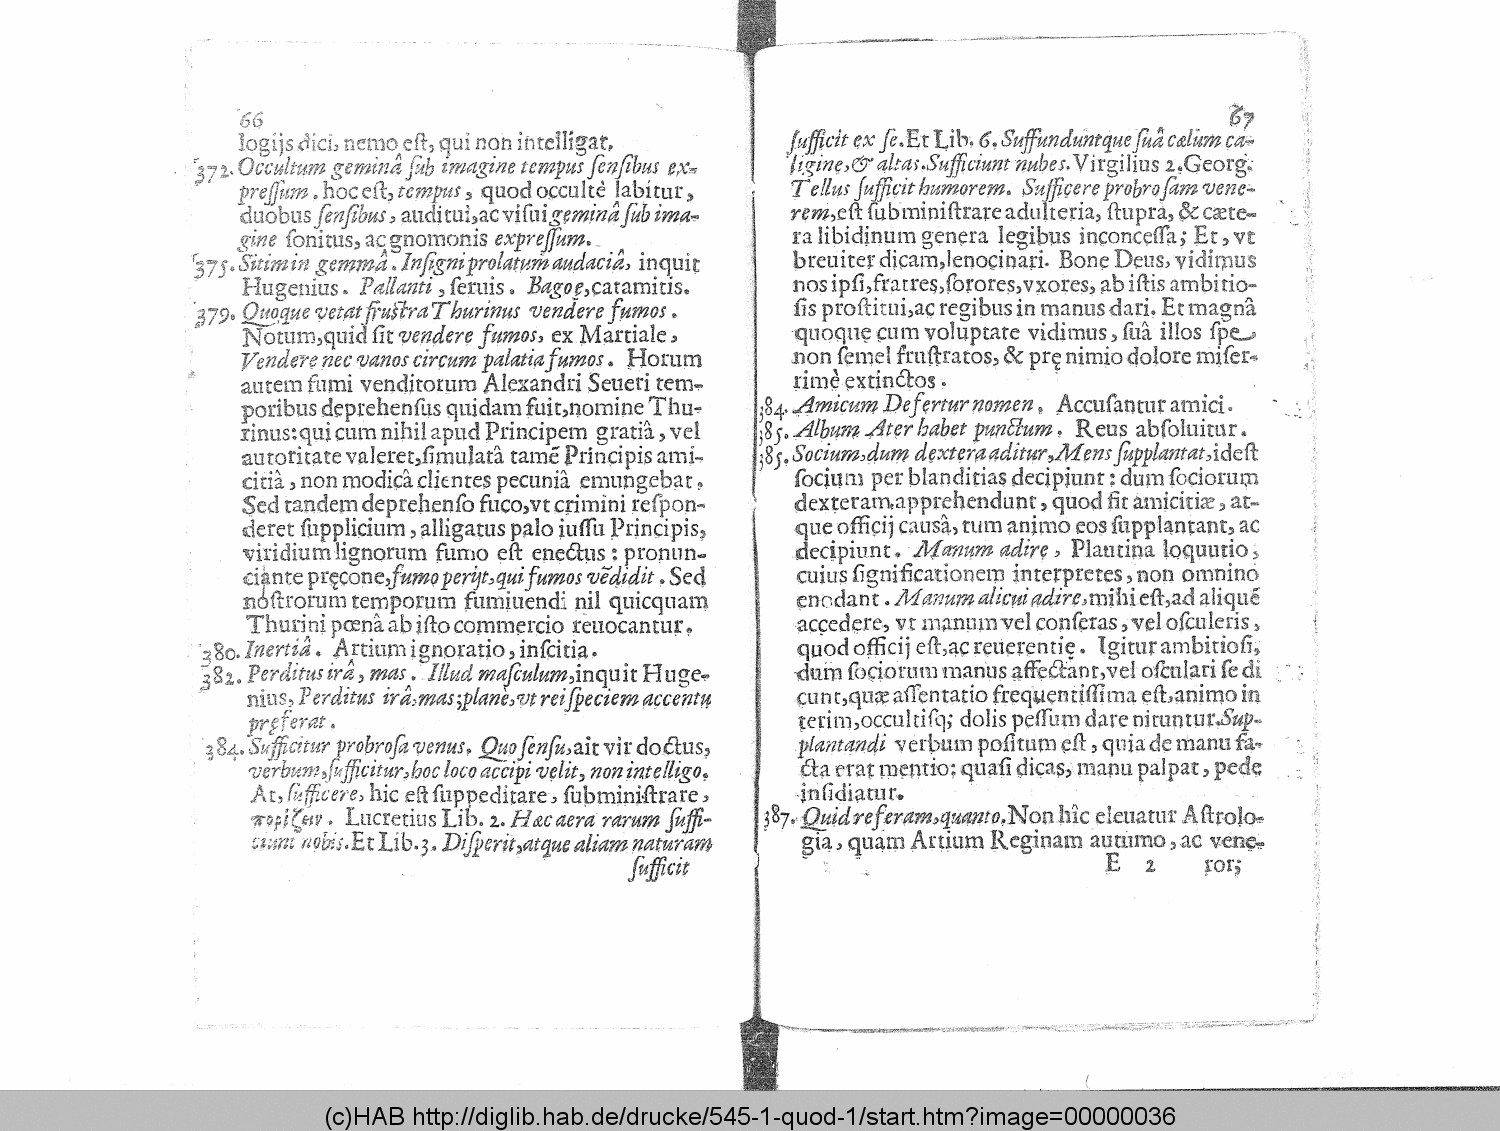 66
logijs dici, nemo eſt, qui non intelligat.
372. Occultum geminâ ſub imagine tempus ſenſibus ex-
preſſum. hoc eſt, tempus, quod occultè labitur,
duobus ſenſibus, auditui, ac viſui geminâ ſub ima-
gine ſonitus, ac gnomonis expreſſum.
375. Sitim in gemmâ. Inſigni prolatum audaciâ, inquit
Hugenius. Pallanti, ſeruis. Bagoę, catamitis.
379. Quoque vetat fruſtra Thurinus vendere fumos.
Notum, quid ſit vendere fumos, ex Martiale,
Vendere nec vanos circum palatia fumos. Horum
autem fumi venditorum Alexandri Seueri tem-
poribus deprehenſus quidam fuit, nomine Thu-
rinus: qui cum nihil apud Principem gratiâ, vel
autoritate valeret, ſimulatâ tamē Principis ami-
citiâ, non modicâ clientes pecuniâ emungebat.
Sed tandem deprehenſo fuco, vt crimini reſpon-
deret ſupplicium, alligatus palo iuſſu Principis,
viridium lignorum fumo eſt enectus: pronun-
ciante pręcone, fumo perijt, qui fumos vēdidit. Sed
noſtrorum temporum fumiuendi nil quicquam
Thurini pœnâ ab iſto commercio reuocantur.
380. Inertiâ. Artium ignoratio, inſcitia.
382. Perditus irâ, mas. Illud maſculum, inquit Huge-
nius, Perditus irâ, mas; planè, vt rei ſpeciem accentu
pręferat.
384. Sufficitur probroſa venus. Quo ſenſu, ait vir doctus,
verbum, ſufficitur, hoc loco accipi velit, non intelligo.
At, ſufficere, hic eſt ſuppeditare, ſubminiſtrare,
πορίζειν. Lucretius Lib. 2. Hæc aera rarum ſuffi-
ciunt nobis. Et Lib. 3. Diſperit, atque aliam naturam
ſufficit
67
ſufficit ex ſe. Et Lib. 6. Suffunduntque ſuâ cælum ca-
ligine, & altas. Sufficiunt nubes. Virgilius 2. Georg.
Tellus ſufficit humorem. Sufficere probroſam vene-
rem, eſt ſubminiſtrare adulteria, ſtupra, & cæte-
ra libidinum genera legibus inconceſſa; Et, vt
breuiter dicam, lenocinari. Bone Deus, vidimus
nos ipſi, fratres, ſorores, vxores, ab iſtis ambitio-
ſis proſtitui, ac regibus in manus dari. Et magnâ
quoque cum voluptate vidimus, ſuâ illos ſpe
non ſemel fruſtratos, & prę nimio dolore miſer-
rimè extinctos.
384. Amicum Defertur nomen. Accuſantur amici.
385. Album Ater habet punctum. Reus abſoluitur.
385. Socium, dum dextera aditur, Mens ſupplantat, ideſt
ſocium per blanditias decipiunt: dum ſociorum
dexteram apprehendunt, quod fit amicitiæ, at-
que officij causâ, tum animo eos ſupplantant, ac
decipiunt. Manum adire, Plautina loquutio,
cuius ſignificationem interpretes, non omnino
enodant. Manum alicui adire, mihi eſt, ad aliquē
accedere, vt manum vel conſeras, vel oſculeris,
quod officij eſt, ac reuerentię. Igitur ambitioſi,
dum ſociorum manus affectant, vel oſculari ſe di
cunt, quæ aſſentatio frequentiſſima eſt, animo in
terim, occultiſq; dolis peſſum dare nituntur. Sup-
plantandi verbum poſitum eſt, quia de manu fa-
cta erat mentio: quaſi dicas, manu palpat, pede
inſidiatur.
387. Quid referam, quanto. Non hîc eleuatur Aſtrolo-
gia, quam Artium Reginam autumo, ac vene-
E 2 ror;
(c)HAB http://diglib.hab.de/drucke/545-1-quod-1/start.htm?image=00000036